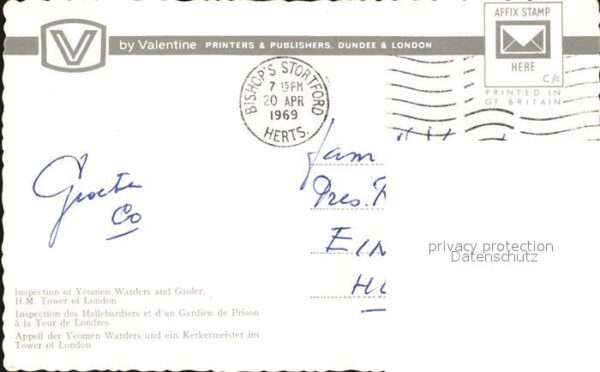 V by Valentine PRINTERS & PUBLISHERS, DUNDEE & LONDON
AFFIX STAMP
HERE
C/4
PRINTED IN
GT. BRITAIN
BISHOP'S STORTFORD
7 15 PM
20 APR
1969
HERTS.
Groeten
Co
Fam
Pres.
EIN
privacy protection
Datenschutz
Inspection of Yeomen Warders and Gaoler,
H.M. Tower of London
Inspection des Hallebardiers et d'un Gardien de Prison
à la Tour de Londres
Appell der Yeomen Warders und ein Kerkermeister im
Tower of London